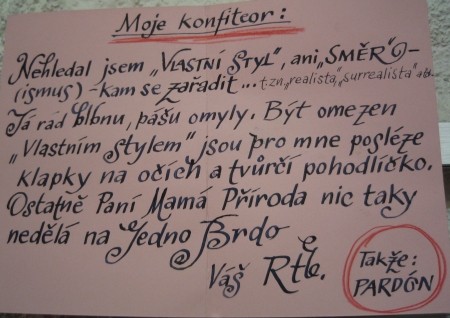 Moje konfiteor:
Nehledal jsem „VLASTNÍ STYL", ani „SMĚR"
(ismus) - kam se zařadit... t.zn „realista", „surrealista" atd.
Já rád blbnu, pášu omyly. Být omezen
„Vlastním stylem" jsou pro mne posléze
klapky na očích a tvůrčí pohodlíčko.
Ostatně Paní Mamá Příroda nic taky
nedělá na Jedno Brdo
Váš
Takže:
PARDÓN